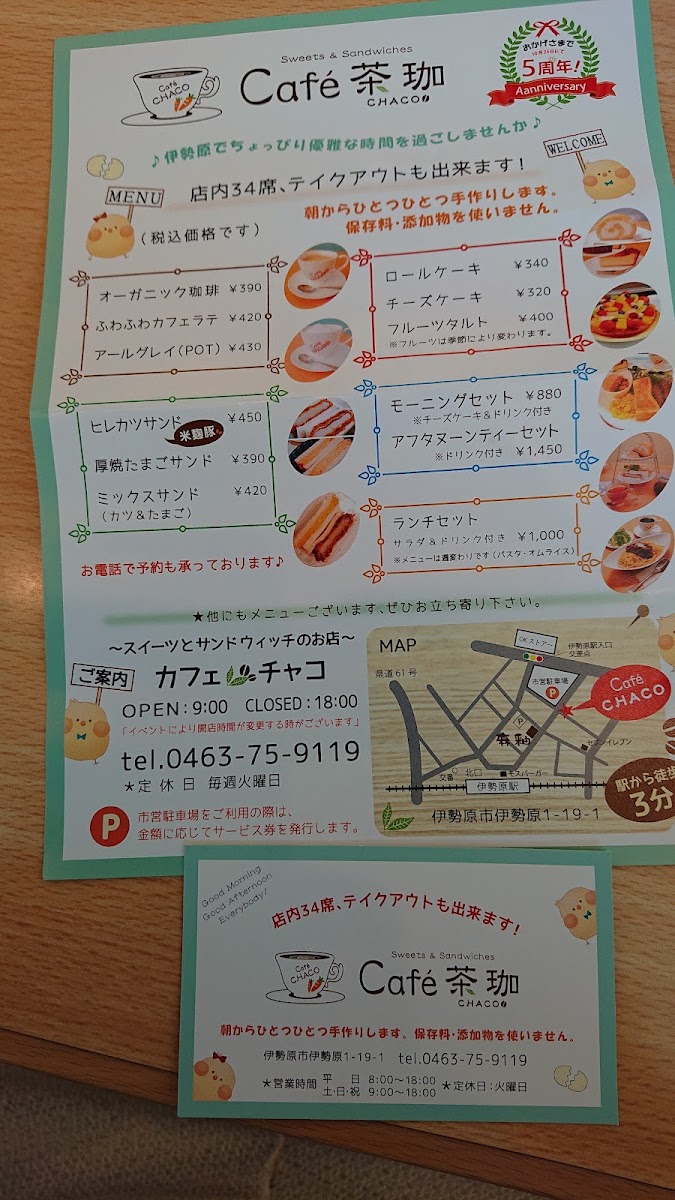 Sweets & Sandwiches
Café 茶珈
CHACO
Café
CHACO
おかげさまで
5周年!
Aanniversary
♪伊勢原でちょっぴり優雅な時間を過ごしませんか♪
WELCOME
MENU
店内34席、テイクアウトも出来ます!
(税込価格です)
朝からひとつひとつ手作りします。
保存料・添加物を使いません。
オーガニック珈琲 ¥390
ふわふわカフェラテ ¥420
アールグレイ(POT) ¥430
ロールケーキ ¥340
チーズケーキ ¥320
フルーツタルト ¥400
※フルーツは季節により変わります。
ヒレカツサンド ¥450
米麹豚
厚焼たまごサンド ¥390
ミックスサンド ¥420
(カツ&たまご)
モーニングセット ¥880
※チーズケーキ&ドリンク付き
アフタヌーンティーセット
※ドリンク付き ¥1,450
ランチセット
サラダ&ドリンク付き ¥1,000
※メニューは週変わりです(パスタ・オムライス)
お電話で予約も承っております♪
★他にもメニューございます、ぜひお立ち寄り下さい。
〜スイーツとサンドウィッチのお店〜
ご案内
カフェ チャコ
OPEN:9:00 CLOSED:18:00
「イベントにより開店時間が変更する時がございます」
tel.0463-75-9119
*定休日 毎週火曜日
P
市営駐車場をご利用の際は、
金額に応じてサービス券を発行します。
MAP
OKストアー
伊勢原駅入口
交差点
県道61号
市営駐車場
P
Café
CHACO
P
セブンイレブン
交番
北口
モスバーガー
伊勢原駅
駅から徒歩
3分
伊勢原市伊勢原1-19-1
Good Morning
Good Afternoon
Everybody!
店内34席、テイクアウトも出来ます!
Café
CHACO
Sweets & Sandwiches
Café 茶珈
CHACO
朝からひとつひとつ手作りします。保存料・添加物を使いません。
伊勢原市伊勢原1-19-1 tel.0463-75-9119
*営業時間 平 日 8:00〜18:00
土・日・祝 9:00〜18:00
*定休日:火曜日